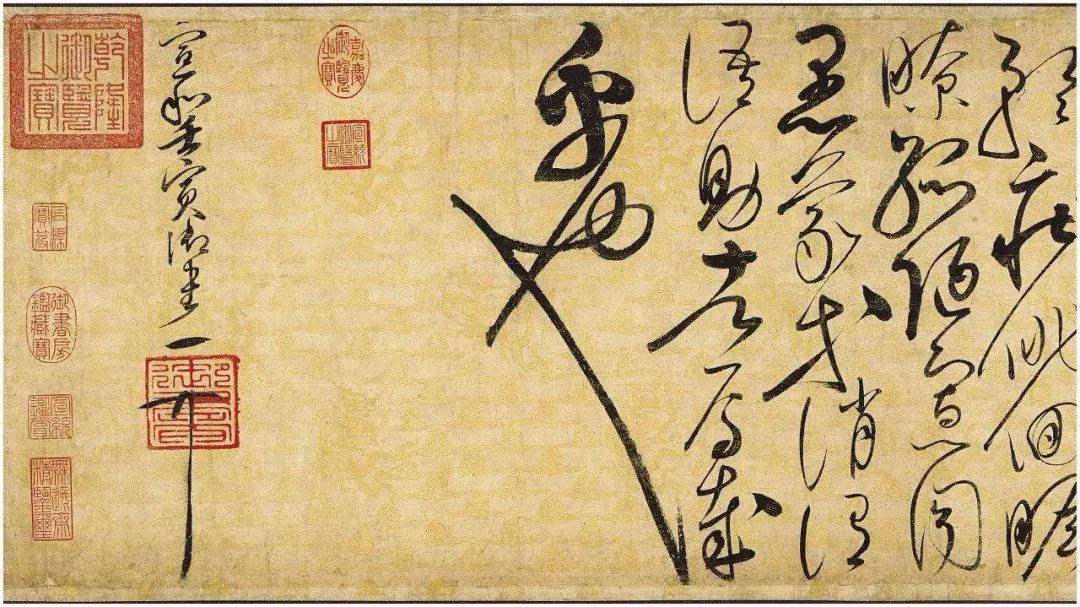 矜莊徘徊瞻
眺孤陋寡聞
愚蒙等誚謂
語助者焉哉
乎也
嘉慶御覽之寶
宣統御覽之寶
宣和壬寅御書
御書
乾隆御覽之寶
石渠寶笈
御書房鑑藏寶
宣統鑑賞
無逸齋精鑒璽